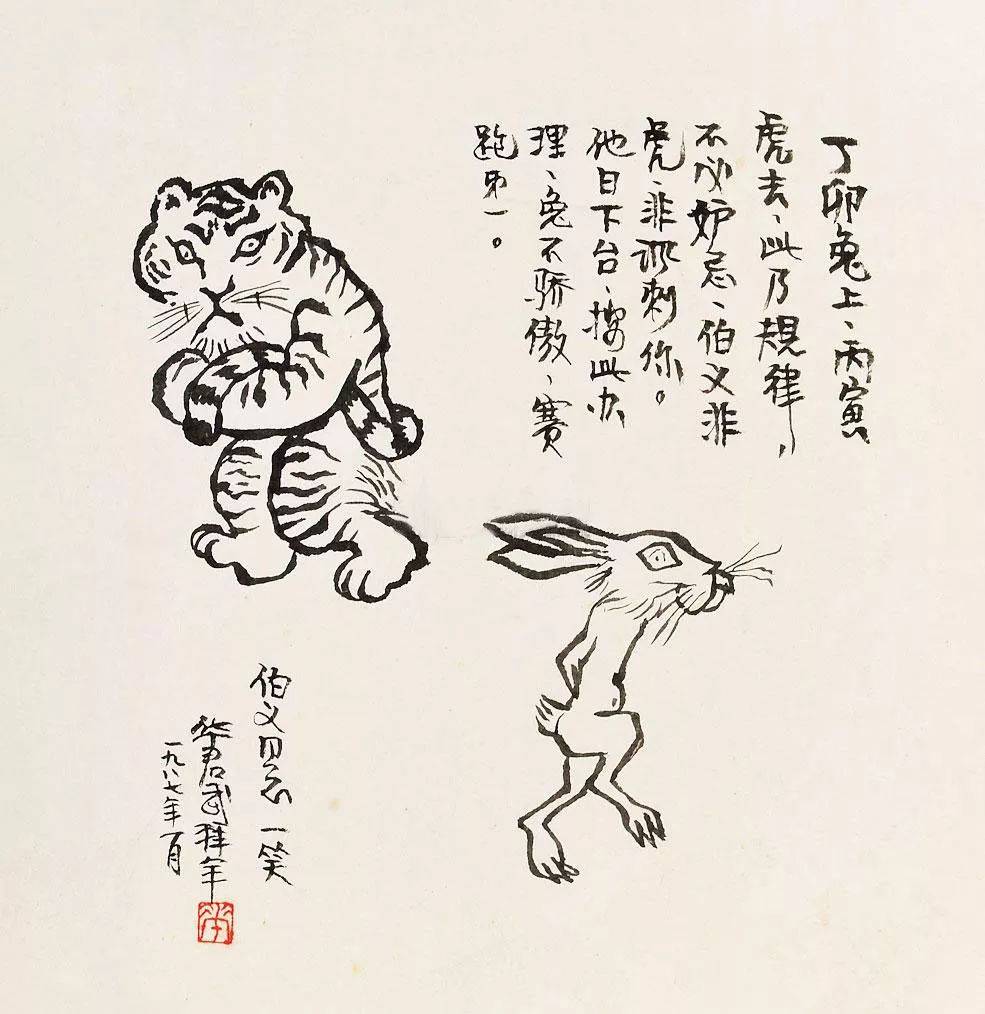 丁卯兔上、丙寅
虎去、此乃規律，
不必妒忌、伯义非
虎、非讽刺你。
他日下台、按此办
理、兔不骄傲、赛
跑第一。
伯义同志一笑
华君武拜年
一九八七年一月